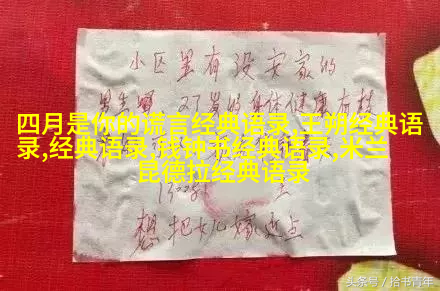 小区里有没安家的
男生吗 27岁的身体健康有
四月是你的谎言经典语录,王朔经典语
录,经典语录,钱钟书经典语录,米兰
昆德拉经典语录
想把女儿嫁近点
头条号／拾书青年